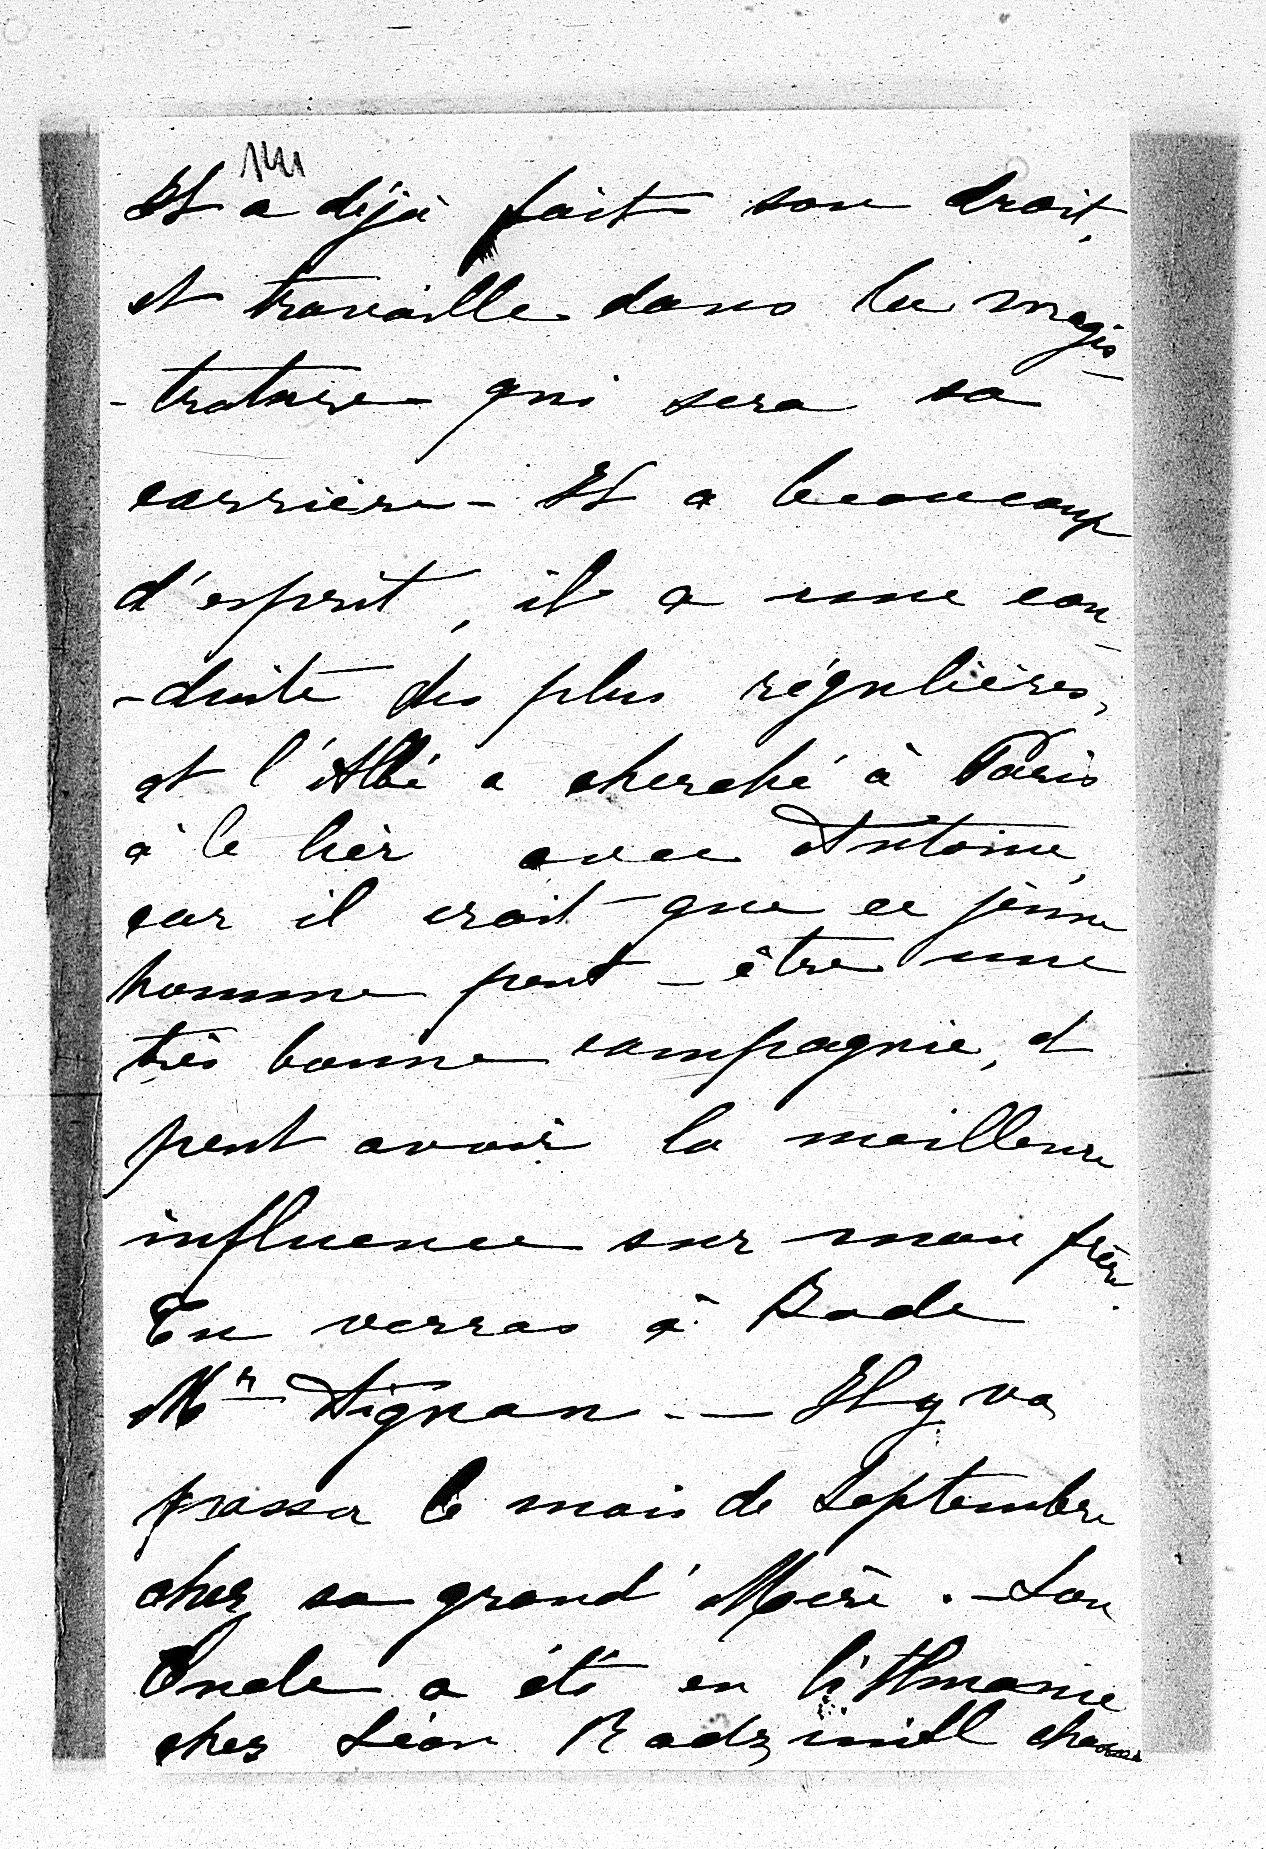 Il a déjà fait son droit,
et travaille dans la magis-
-trature qui sera sa
carrière - Il a beaucoup
d'esprit, il a une con-
-duite des plus régulières,
et l'Abbé a cherché à Paris
à le lièr avec Antoine,
car il croit que ce jeune
homme peut-être une
très bonne compagnie, et
peut avoir la meilleure
influence sur mon frère.
Tu verras à Bade
Mr - Il y va
passer le mois de Septembre
chez sa grand' Mère. - Son
Oncle a été en Litthuanie
chez Léon Radziwill